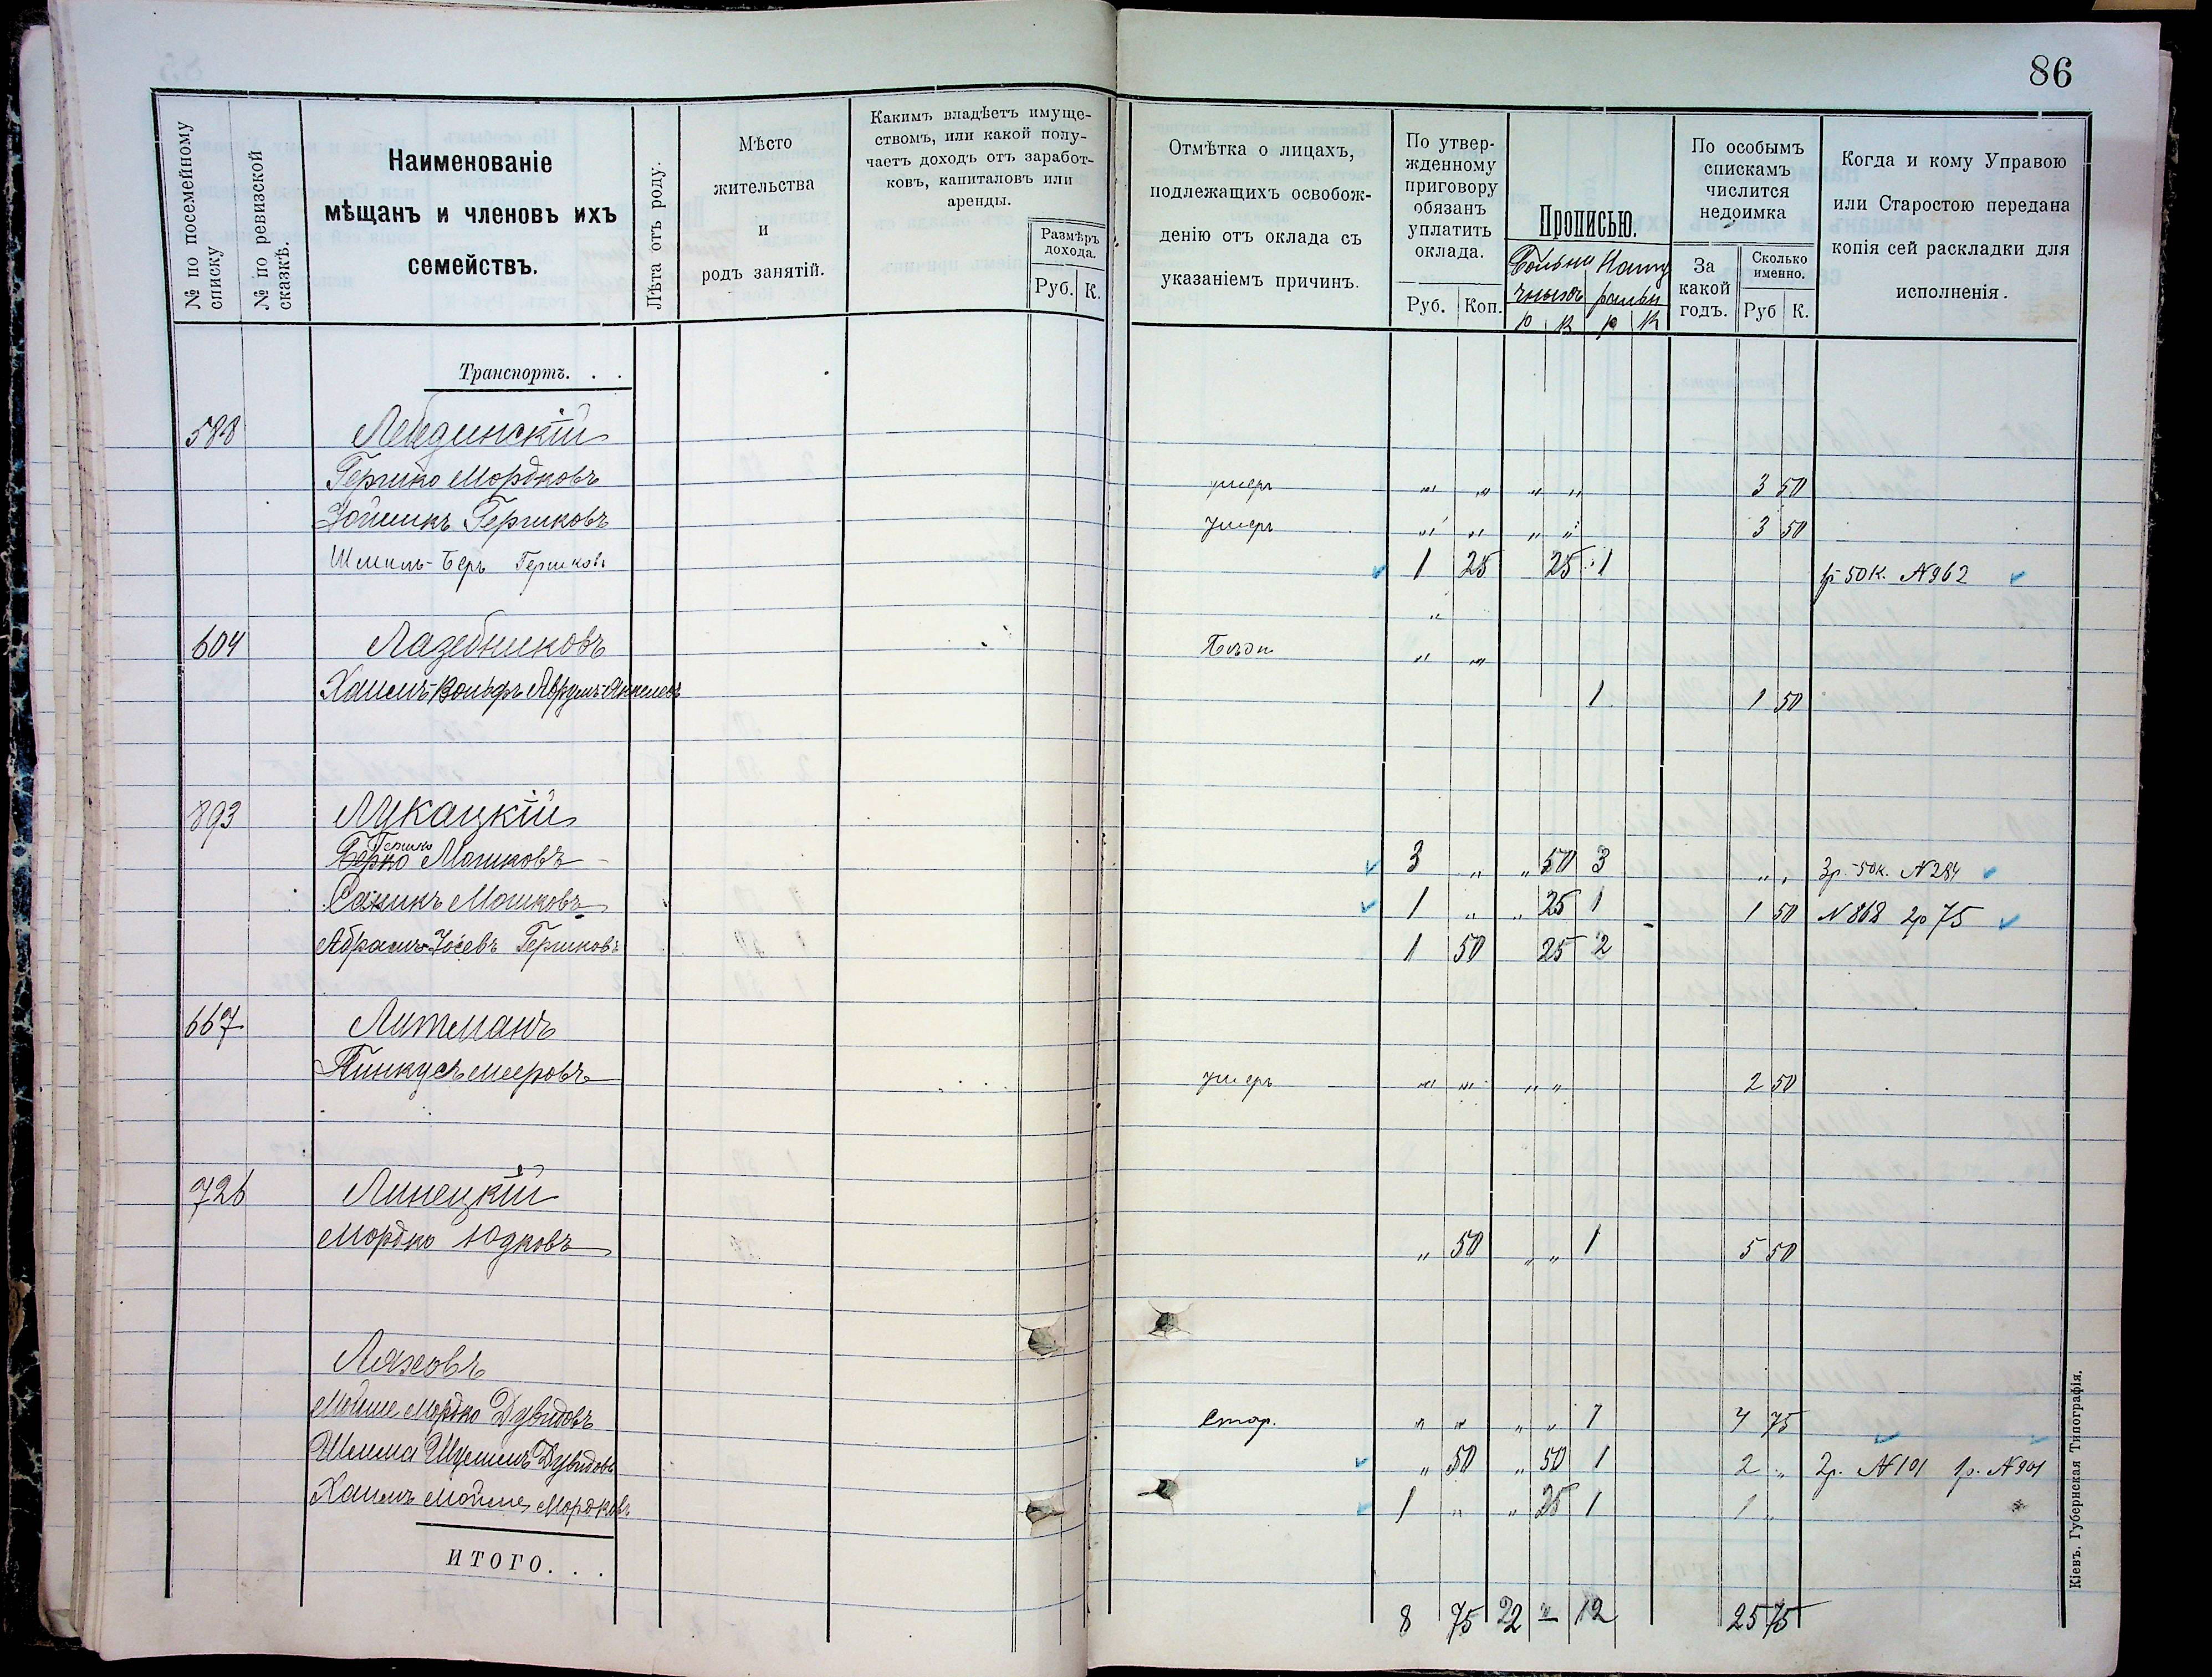 86
№ по посемейному списку
№ по ревизской сказкѣ.
Наименованіе
мѣщанъ и членовъ ихъ
семействъ.
Лѣта отъ роду.
Мѣсто
жительства
и
родъ занятій.
Какимъ владѣетъ имуще-
ствомъ, или какой полу-
чаетъ доходъ отъ заработ-
ковъ, капиталовъ или
аренды.
Размѣръ
дохода.
Руб. К.
Отмѣтка о лицахъ,
подлежащихъ освобож-
денію отъ оклада съ
указаніемъ причинъ.
По утвер-
жденному
приговору
обязанъ
уплатить
оклада.
Руб. Коп.
Прописью.
р к р к
По особымъ
спискамъ
числится
недоимка
За
какой
годъ.
Сколько
именно.
Руб К.
Когда и кому Управою
или Старостою передана
копія сей раскладки для
исполненія.
Транспортъ. . .
588 Лебединскій
Гершко Мордковъ умеръ „ „ „ „ 3 50
Зойликъ Гершковъ умеръ „ „ „ „ 3 50
Шмиль-Беръ Гершковъ 1 25 25 1 1р 50к. №962
604 Лазебниковъ „ „
Хаимъ-Вольфъ 1 1 50
893 Лукацкій
Гершко
Берко Мошковъ 3 „ „ 50 3 „ „ 3р. 50к. №284
Мошковъ 1 „ „ 25 1 1 50 №868 2р 75
Абрамъ-Іосевъ Гершковъ 1 50 25 2
667 Литманъ
Пинкусъ Мееровъ умеръ „ „ „ „ 2 50
726 Линецкій
Мордко Юдковъ „ 50 „ „ 1 5 50
Ляховъ
Мойше Мордко Дувидовъ Стар. „ „ „ „ 1 4 75
Шлема Дувидовъ „ 50 „ 50 1 2 „ 2р. №101 1р. №901
Хаимъ Мойше Мордковъ 1 „ „ 25 1 1 „
ИТОГО. . .
8 75 22 – 12 25 75
Кіевъ. Губернская Типографія.